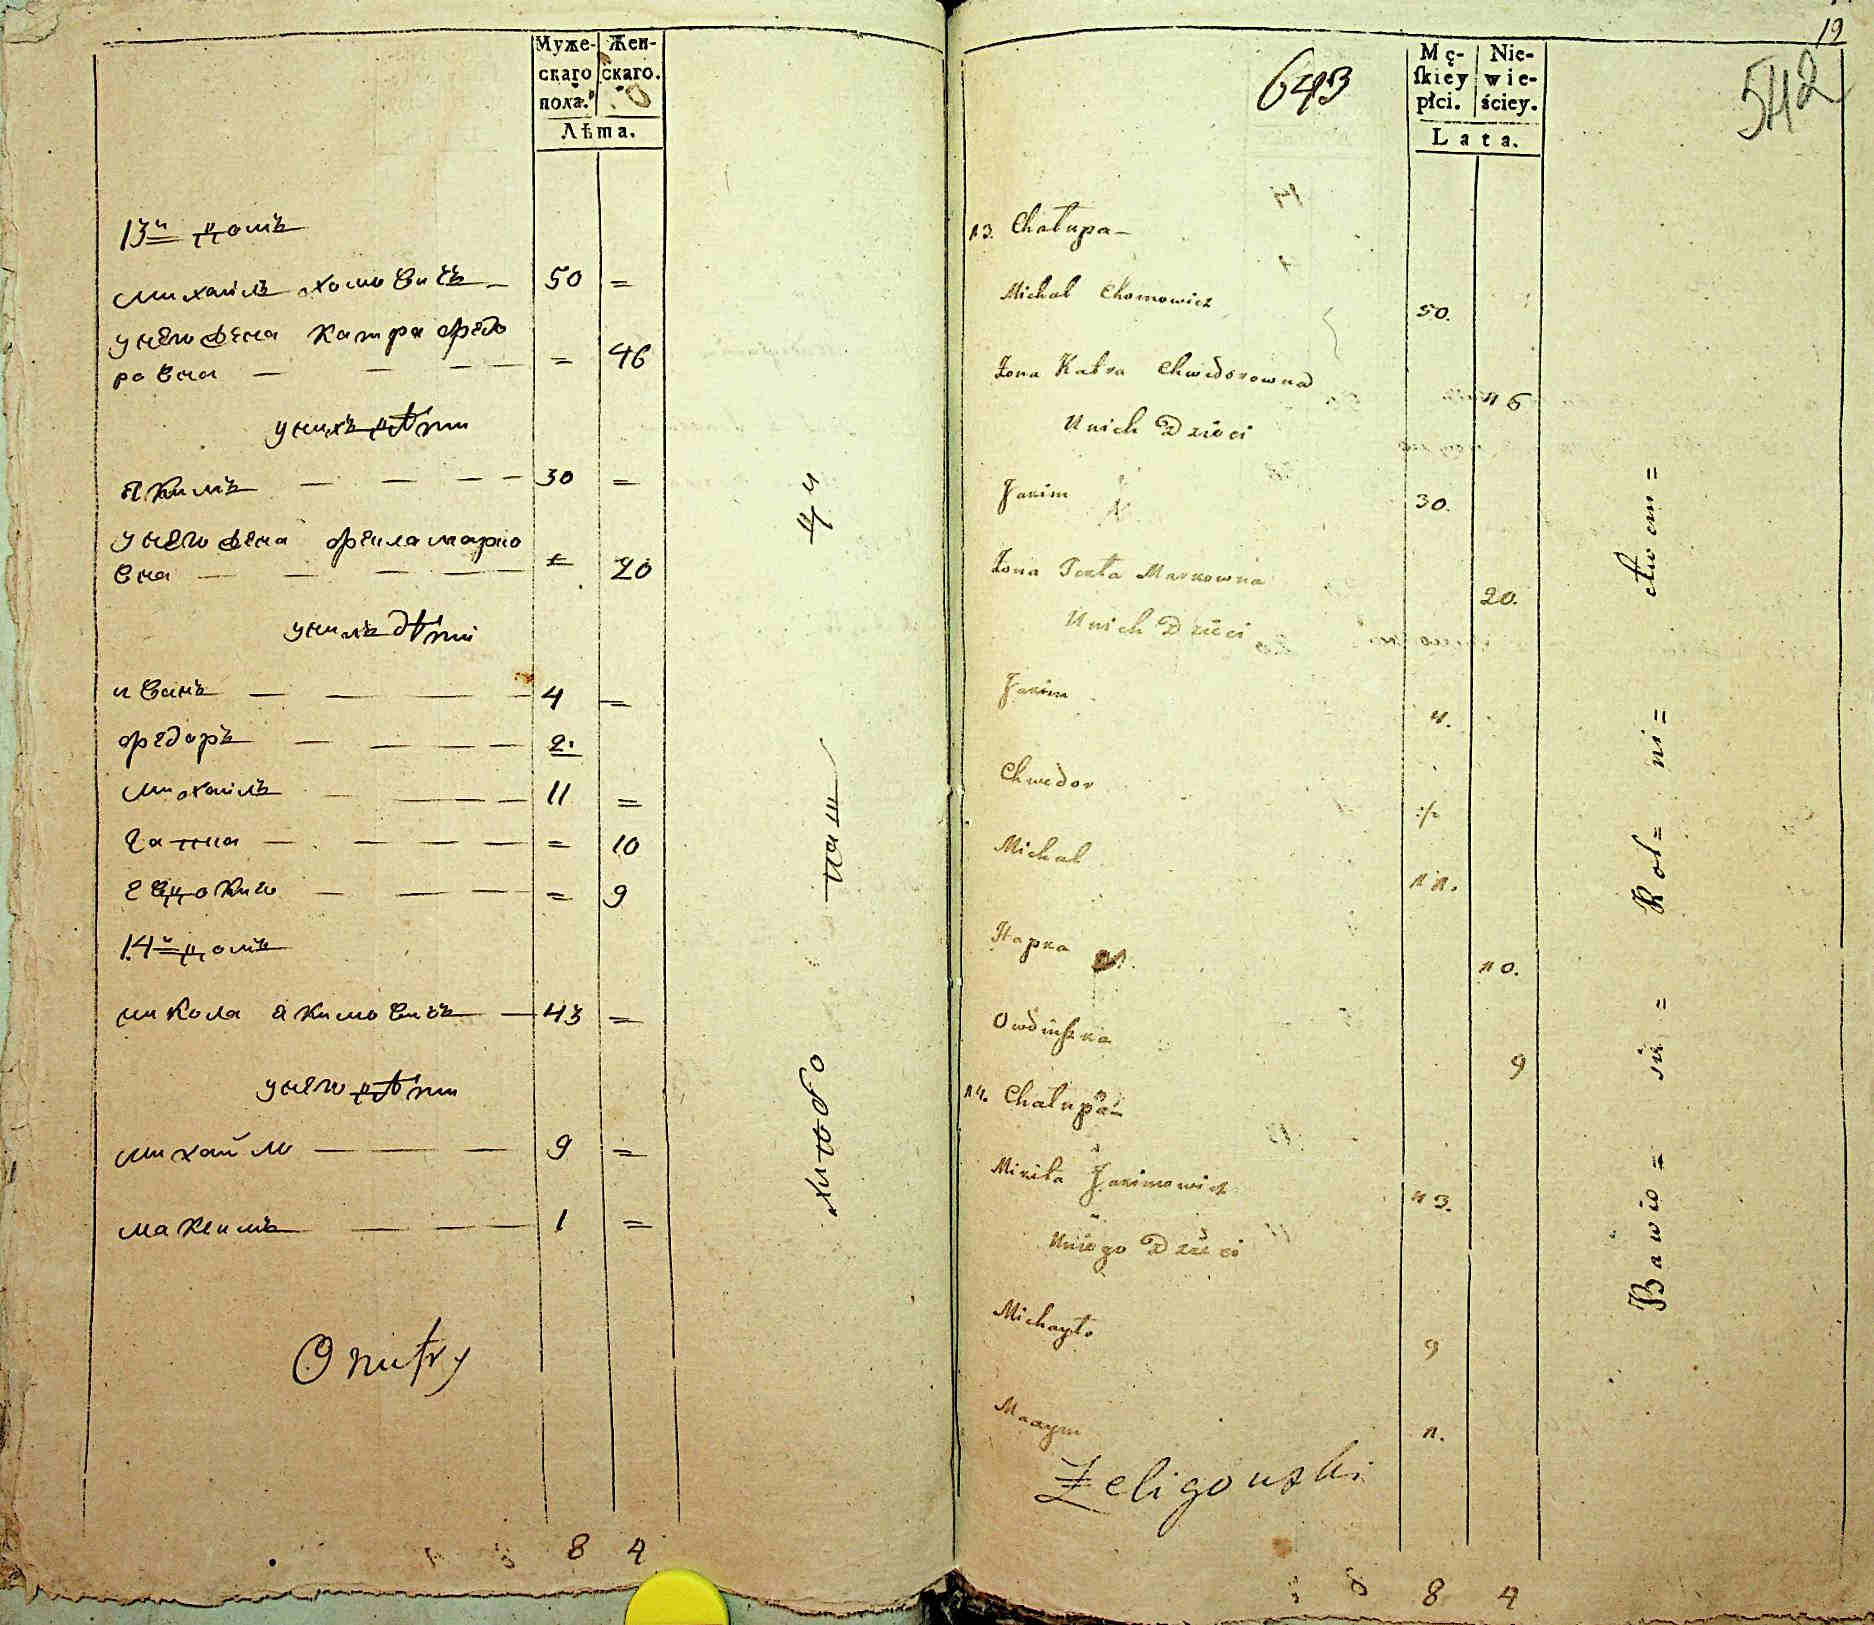 Муже-
скаго
пола.
Жен-
скаго.
Лѣта.
13й домъ
михайлъ хомовичъ 50 =
унего жена катра федо
ровна = 46
унихъ дѣти
якимъ 30 =
унего жена фекла марко
вна = 20
унихъ дѣти
иванъ 4 =
федоръ 2.
михайлъ 11 =
гапка = 10
евдокия = 9
14й домъ
микола якимовичъ 43 =
унего дѣти
михайло 9 =
максимъ 1 =
8 4
19
643
542
Mę-
ſkiey
płci.
Nie-
wie-
ściey.
Lata.
13. Chałupa
Michał Chomowicz 50.
Żona Katra Chwedorowna 46
Unich Dzieci
Jakim 30.
Żona Tekla Markowna 20.
Unich Dzieci
4.
Chwedor
Michał 11.
Hapka 10.
9
14. Chałupa
Mikita Jakimowicz 43.
Uniego Dzieci
Michayło 9
Maxym 1.
Żeligowski
8 4
Bawio= sie = Rol= ni= ctwem=